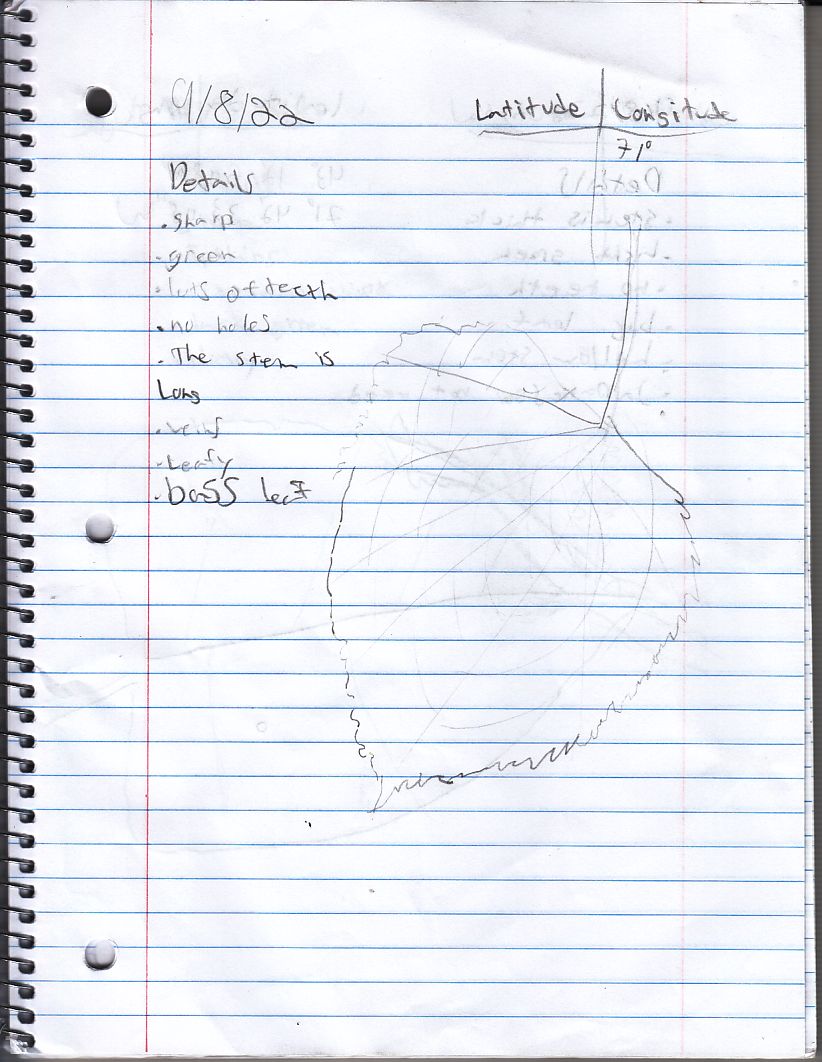 9/8/22
Latitude Longitude
71°
Details
. sharp
. green
. lots of teeth
. no holes
. The stem is
Long
. veins
. Leafy
. boss leaf